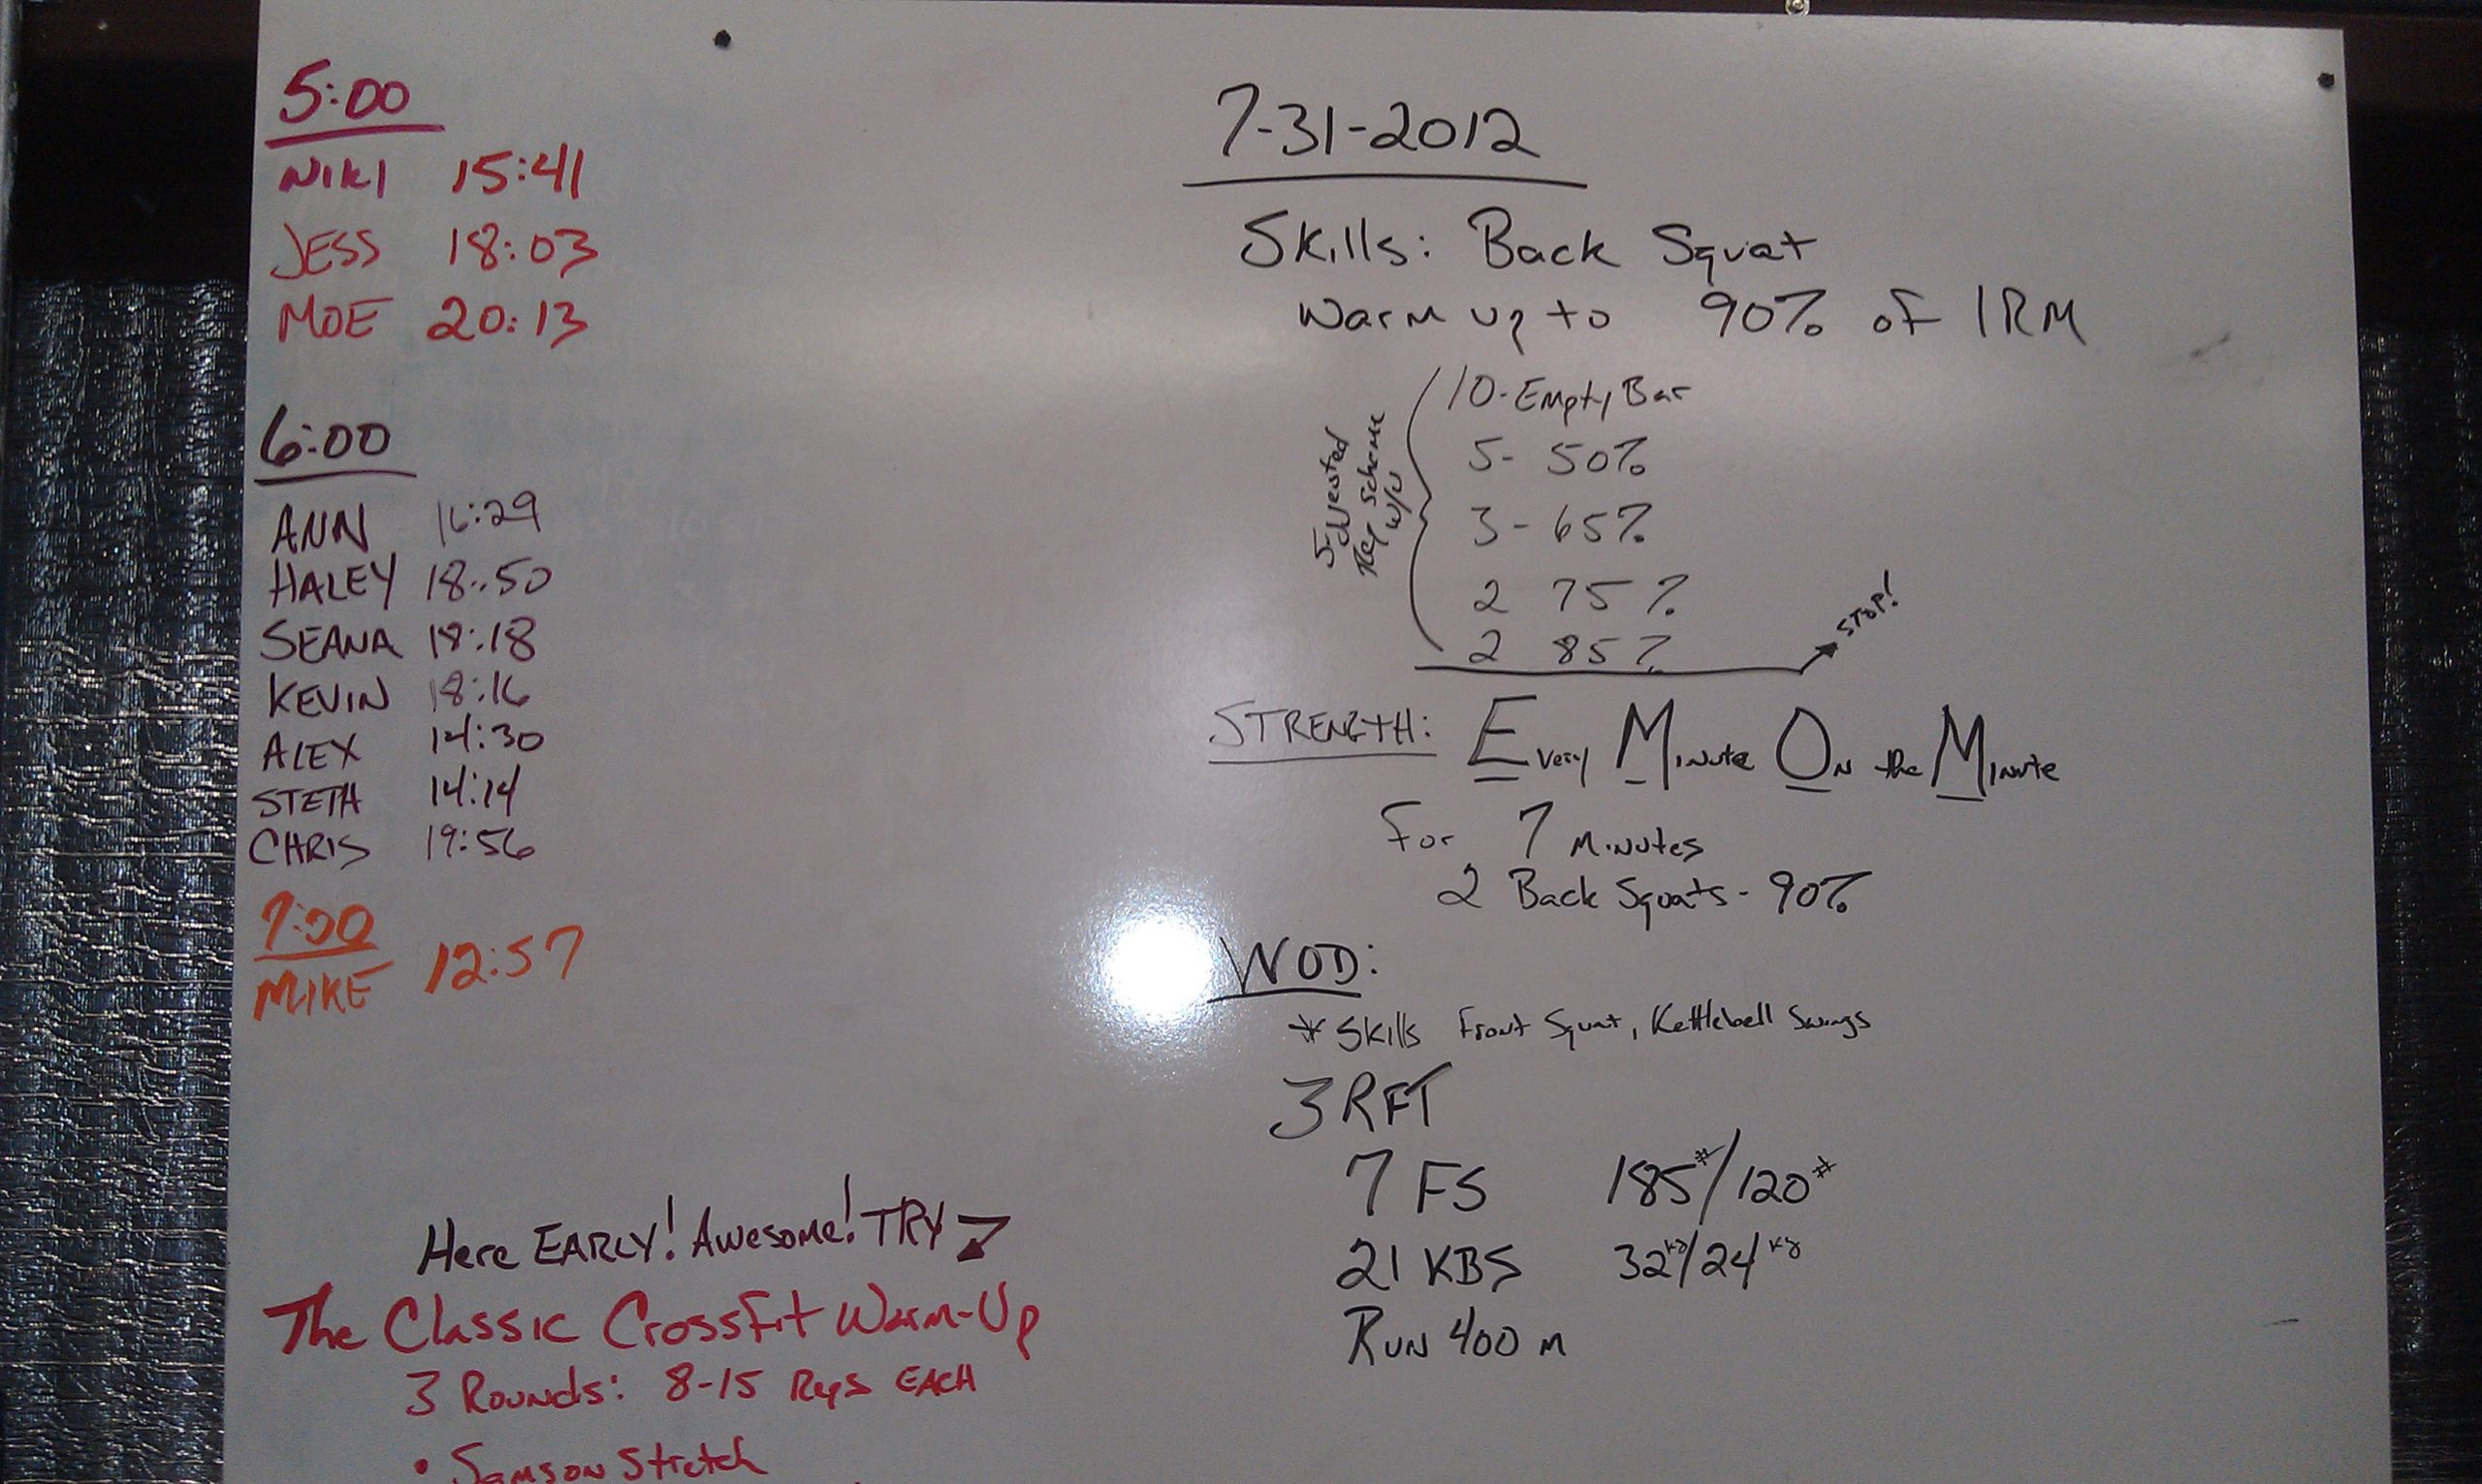 5:00
NIKI 15:41
JESS 18:03
MOE 20:13
6:00
ANN 16:29
HALEY 18:50
SEANA 18:18
KEVIN 18:16
ALEX 14:30
STETH 14:14
CHRIS 19:56
7:00
MIKE 12:57
Here EARLY! Awesome! TRY
The Classic CrossFit Warm-Up
3 Rounds: 8-15 Reps EACH
• Samson Stretch
7-31-2012
Skills: Back Squat
Warm up to 90% of 1RM
Suggested
Rep Scheme
W/U
10-Empty Bar
5- 50%
3- 65%
2 75%
2 85%
STOP!
STRENGTH: Every Minute On the Minute
For 7 Minutes
2 Back Squats - 90%
WOD:
* Skills Front Squat, Kettlebell Swings
3 RFT
7 FS 185#/120#
21 KBS 32kg/24kg
Run 400 m